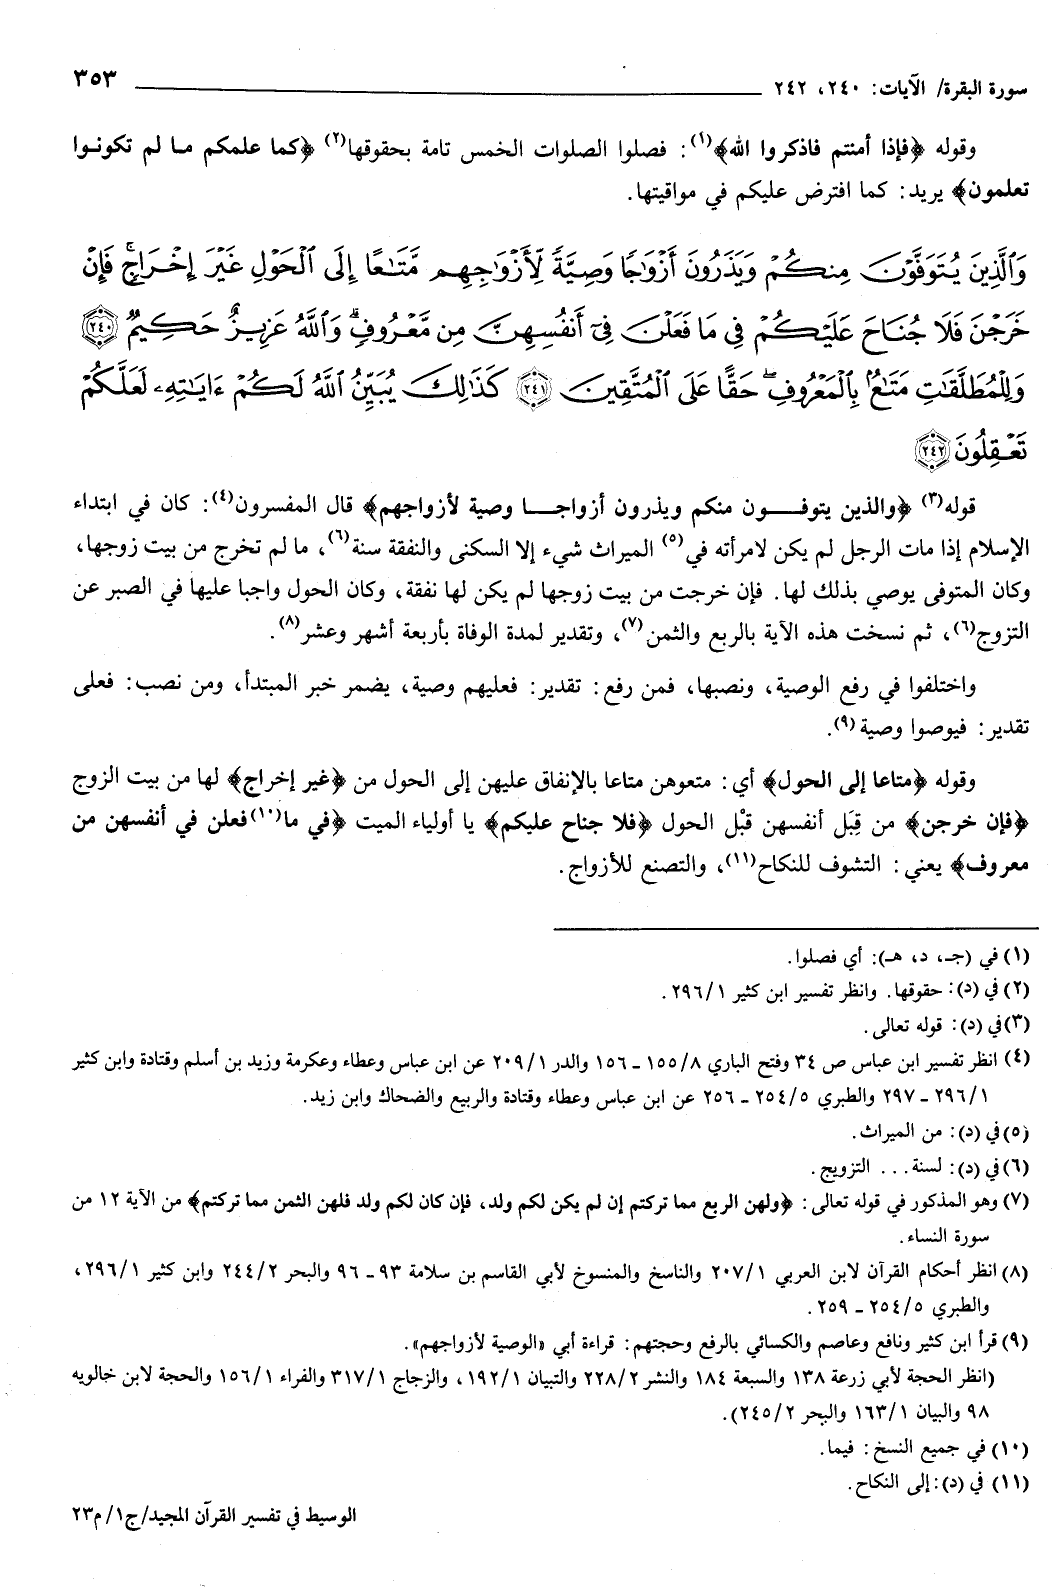 سورة البقرة/ الآيات: ٢٤٠، ٢٤٢
٣٥٣
وقوله ﴿فإذا أمنتم فاذكروا الله﴾(١): فصلوا الصلوات الخمس تامة بحقوقها(٢) ﴿كما علمكم ما لم تكونوا
تعلمون﴾ يريد: كما افترض عليكم في مواقيتها.
وَٱلَّذِينَ يُتَوَفَّوْنَ مِنكُمْ وَيَذَرُونَ أَزْوَٰجًا وَصِيَّةً لِّأَزْوَٰجِهِم مَّتَٰعًا إِلَى ٱلْحَوْلِ غَيْرَ إِخْرَاجٍ ۚ فَإِنْ
خَرَجْنَ فَلَا جُنَاحَ عَلَيْكُمْ فِى مَا فَعَلْنَ فِىٓ أَنفُسِهِنَّ مِن مَّعْرُوفٍ ۗ وَٱللَّهُ عَزِيزٌ حَكِيمٌ ﴿٢٤٠﴾
وَلِلْمُطَلَّقَٰتِ مَتَٰعٌۢ بِٱلْمَعْرُوفِ ۖ حَقًّا عَلَى ٱلْمُتَّقِينَ ﴿٢٤١﴾ كَذَٰلِكَ يُبَيِّنُ ٱللَّهُ لَكُمْ ءَايَٰتِهِۦ لَعَلَّكُمْ
تَعْقِلُونَ ﴿٢٤٢﴾
قوله(٣) ﴿والذين يتوفون منكم ويذرون أزواجا وصية لأزواجهم﴾ قال المفسرون(٤): كان في ابتداء
الإسلام إذا مات الرجل لم يكن لامرأته في(٥) الميراث شيء إلا السكنى والنفقة سنة(٦)، ما لم تخرج من بيت زوجها،
وكان المتوفى يوصي بذلك لها. فإن خرجت من بيت زوجها لم يكن لها نفقة، وكان الحول واجبا عليها في الصبر عن
التزوج(٦)، ثم نسخت هذه الآية بالربع والثمن(٧)، وتقدير لمدة الوفاة بأربعة أشهر وعشر(٨).
واختلفوا في رفع الوصية، ونصبها، فمن رفع: تقدير: فعليهم وصية، يضمر خبر المبتدأ، ومن نصب: فعلى
تقدير: فيوصوا وصية(٩).
وقوله ﴿متاعا إلى الحول﴾ أي: متعوهن متاعا بالإنفاق عليهن إلى الحول من ﴿غير إخراج﴾ لها من بيت الزوج
﴿فإن خرجن﴾ من قِبَل أنفسهن قبْل الحول ﴿فلا جناح عليكم﴾ يا أولياء الميت ﴿في ما(١٠)فعلن في أنفسهن من
معروف﴾ يعني: التشوف للنكاح(١١)، والتصنع للأزواج.
(١) في (جـ، د، هـ): أي فصلوا.
(٢) في (د): حقوقها. وانظر تفسير ابن كثير ٢٩٦/١.
(٣) في (د): قوله تعالى.
(٤) انظر تفسير ابن عباس ص ٣٤ وفتح الباري ١٥٥/٨ ـ ١٥٦ والدر ٢٠٩/١ عن ابن عباس وعطاء وعكرمة وزيد بن أسلم وقتادة وابن كثير
٢٩٦/١ ـ ٢٩٧ والطبري ٢٥٤/٥ ـ ٢٥٦ عن ابن عباس وعطاء وقتادة والربيع والضحاك وابن زيد.
(٥) في (د): من الميراث.
(٦) في (د): لسنة... التزويج.
(٧) وهو المذكور في قوله تعالى: ﴿ولهن الربع مما تركتم إن لم يكن لكم ولد، فإن كان لكم ولد فلهن الثمن مما تركتم﴾ من الآية ١٢ من
سورة النساء.
(٨) انظر أحكام القرآن لابن العربي ٢٠٧/١ والناسخ والمنسوخ لأبي القاسم بن سلامة ٩٣ ـ ٩٦ والبحر ٢٤٤/٢ وابن كثير ٢٩٦/١،
والطبري ٢٥٤/٥ ـ ٢٥٩.
(٩) قرأ ابن كثير ونافع وعاصم والكسائي بالرفع وحجتهم: قراءة أبي «الوصية لأزواجهم».
(انظر الحجة لأبي زرعة ١٣٨ والسبعة ١٨٤ والنشر ٢٢٨/٢ والتبيان ١٩٢/١، والزجاج ٣١٧/١ والفراء ١٥٦/١ والحجة لابن خالويه
٩٨ والبيان ١٦٣/١ والبحر ٢٤٥/٢).
(١٠) في جميع النسخ: فيما.
(١١) في (د): إلى النكاح.
الوسيط في تفسير القرآن المجيد/ج١/م٢٣